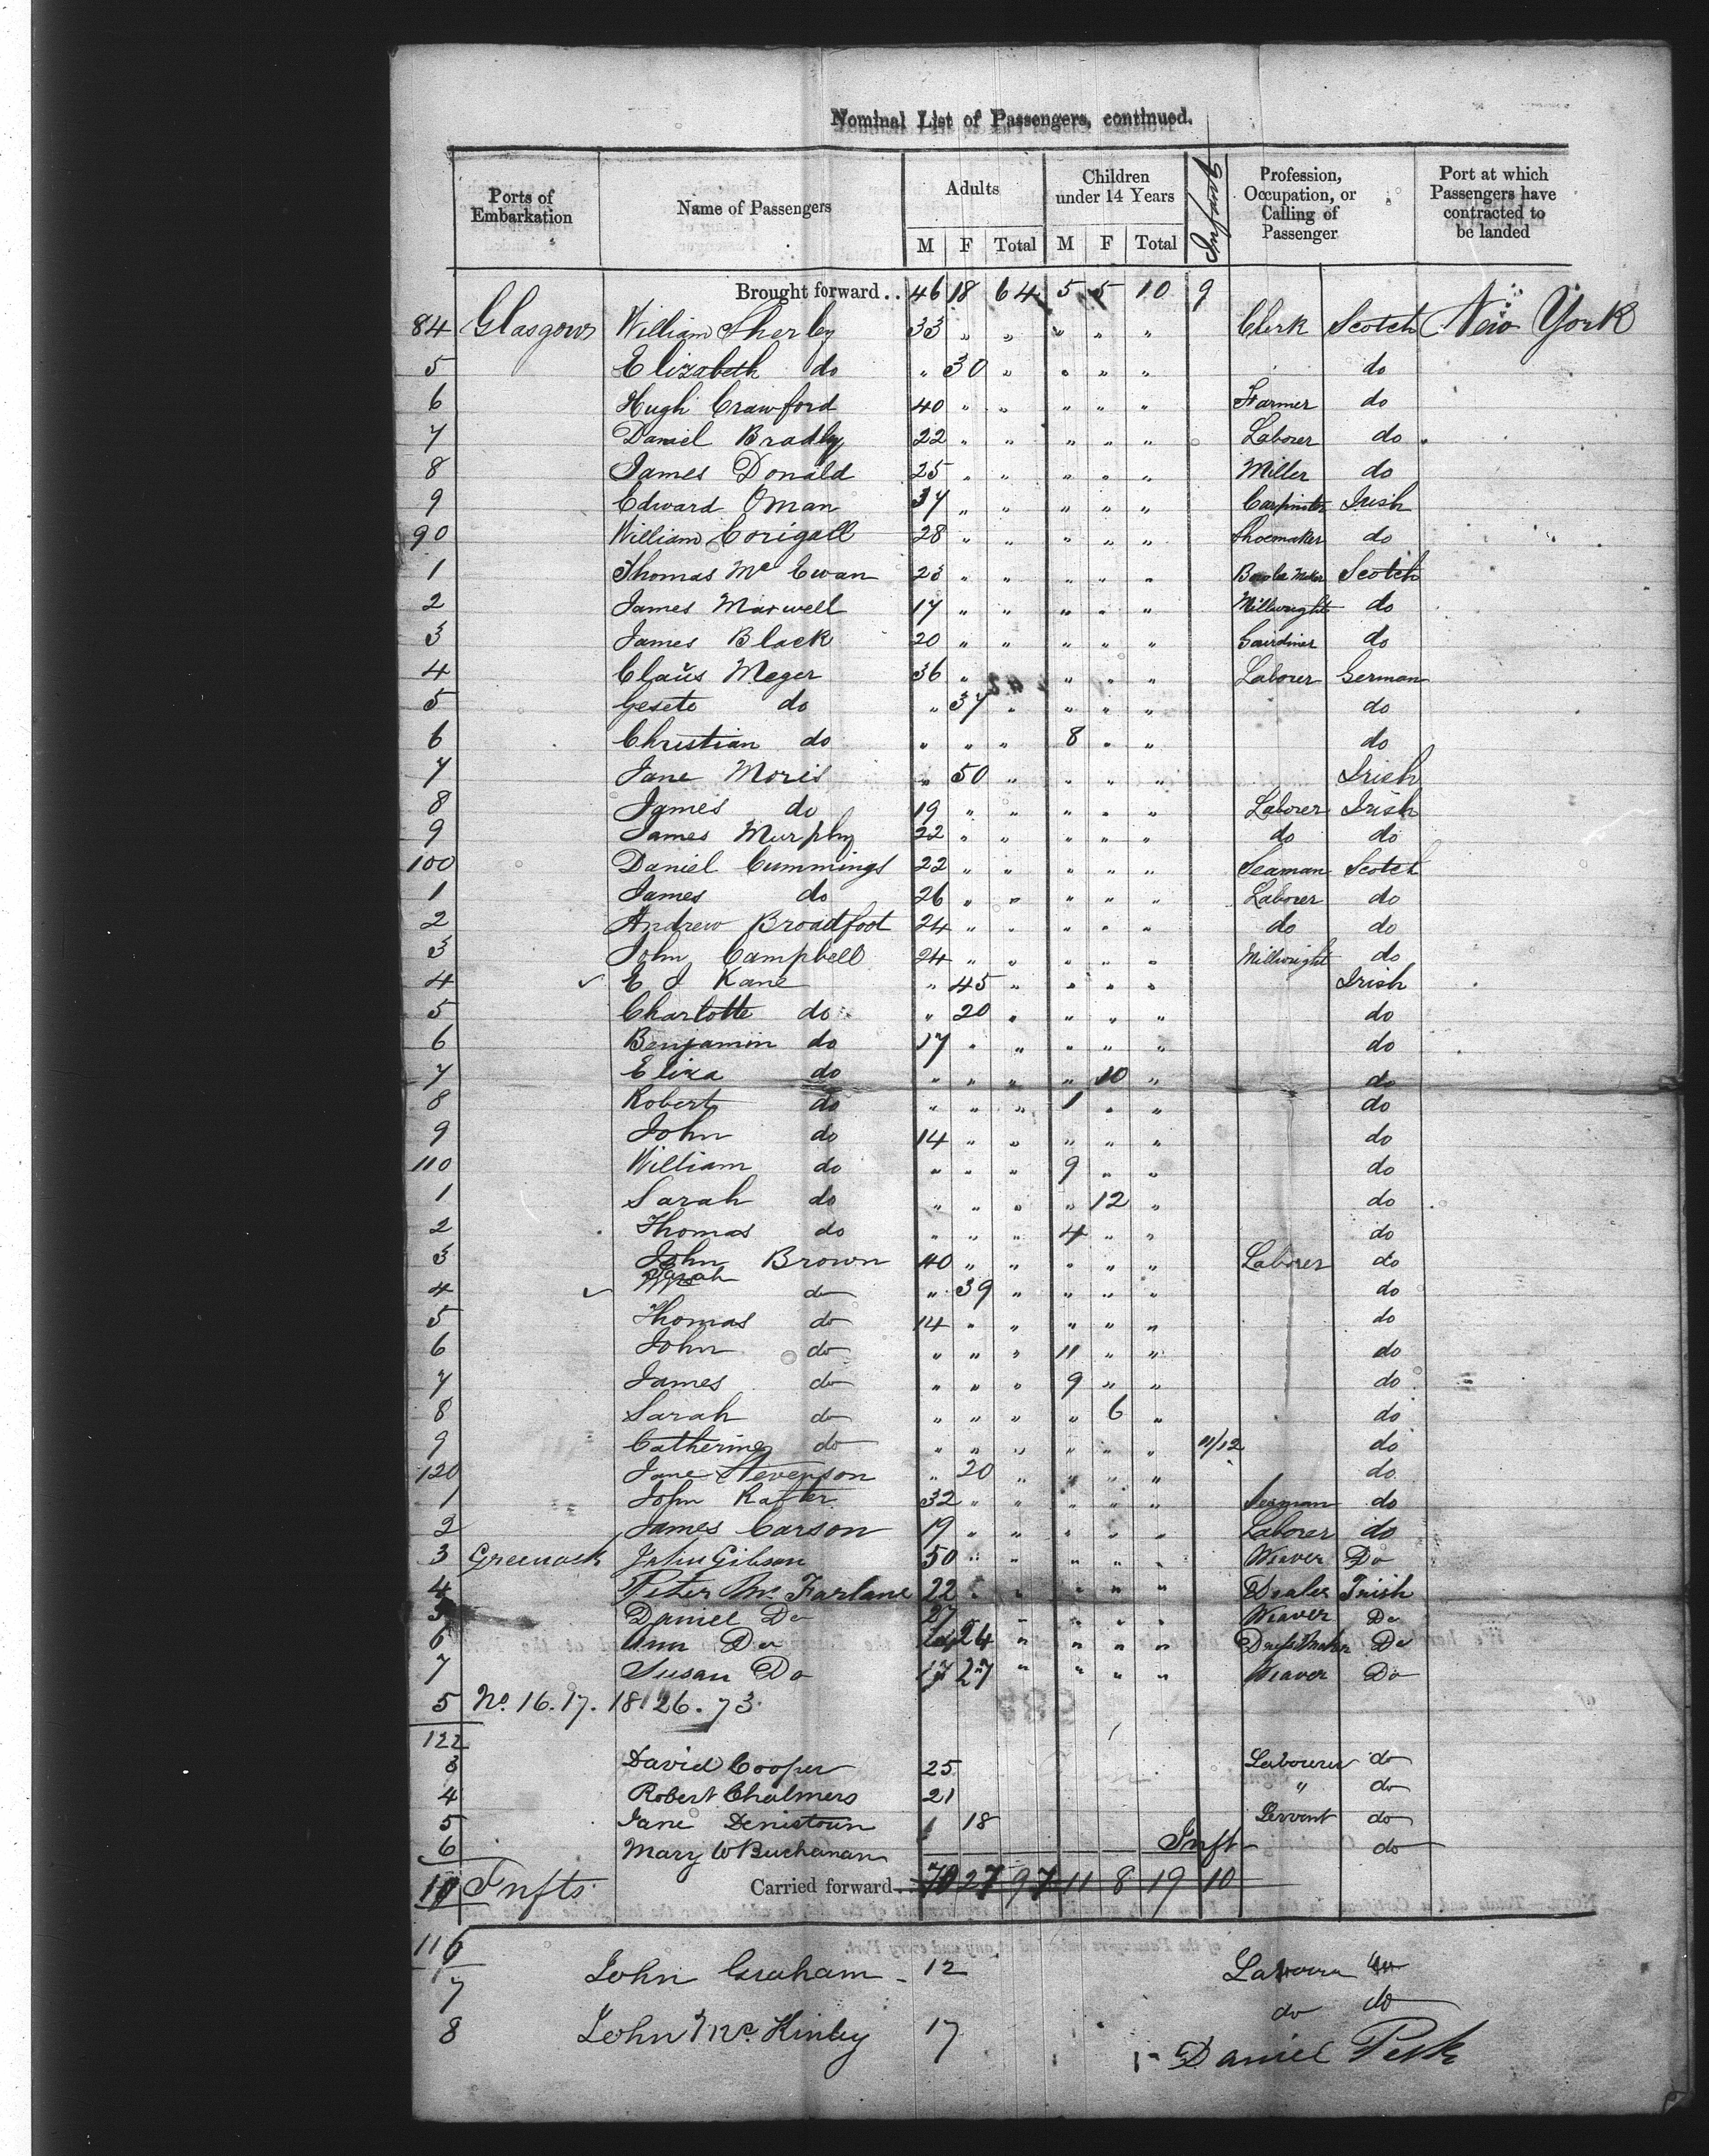 Nominal List of Passengers, continued.
Ports of Embarkation Name of Passengers Adults Children under 14 Years Infants Profession, Occupation, or Calling of Passenger Port at which Passengers have contracted to be landed
M F Total M F Total
Brought forward.. 46 18 64 5 5 10 9
84 Glasgow William Sherley 33 " " " " " Clerk Scotch New York
5 Elizabeth do " 30 " " " " do
6 Hugh Crawford 40 " " " " " Farmer do
7 Daniel Bradly 22 " " " " " Laborer do
8 James Donald 25 " " " " " Miller do
9 Edward Oman 37 " " " " " Carpinter Irish
90 William Corigall 28 " " " " " Shoemaker do
1 Thomas Mc Ewan 23 " " " " " Maker Scotch
2 James Maxwell 17 " " " " " Millwright do
3 James Black 20 " " " " " Gairdiner do
4 Claus Meger 36 " " " " " Laborer German
5 Geseto do " 37 " " " " do
6 Christian do " " " 8 " " do
7 Jane Moris " 50 " " " " Irish
8 James do 19 " " " " " Laborer Irish
9 James Murphy 22 " " " " " do do
100 Daniel Cummings 22 " " " " " Seaman Scotch
1 James do 26 " " " " " Laborer do
2 Andrew Broadfoot 24 " " " " " do do
3 John Campbell 24 " " " " " Millwright do
4 E J Kane " 45 " " " " Irish
5 Charlotte do " 20 " " " " do
6 Benjamin do 17 " " " " " do
7 Eliza do " " " " 10 " do
8 Robert do " " " 1 " " do
9 John do 14 " " " " " do
110 William do " " " 9 " " do
1 Sarah do " " " " 12 " do
2 Thomas do " " " 4 " " do
3 John Brown 40 " " " " " Laborer do
4 Sarah do " 39 " " " " do
5 Thomas do 14 " " " " " do
6 John do " " " 11 " " do
7 James do " " " 9 " " do
8 Sarah do " " " " 6 " do
9 Catherine do " " " " " " 11/12 do
120 Jane Stevenson " 20 " " " " do
1 John Rafter 32 " " " " " Seaman do
2 James Carson 19 " " " " " Laborer do
3 Greenock John Gibson 50 " " " " " Weaver Do
4 Peter Mc Farlane 22 " " " " " Dealer Irish
5 Daniel Do 27 " " " " Weaver Do
6 Ann Do 24 " " " " Dressmaker Do
7 Susan Do 17 27 " " " " Weaver Do
5 No. 16. 17. 18 26. 73.
122
3 David Cooper 25 Labourer do
4 Robert Chalmers 21 " do
5 Jane Denistoun 1 18 Servant do
6 Mary W Buchanan Inft do
10 Infts Carried forward.. 70 27 97 11 8 19 10
116
7 John Graham 12 Labourer do
8 John Mc Kinley 17 do do
1- Daniel Perk